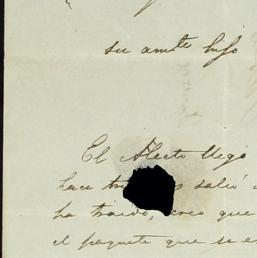 su amte hijo
El Alecto llegó
hace salió
ha traido, creo que
el paquete que se